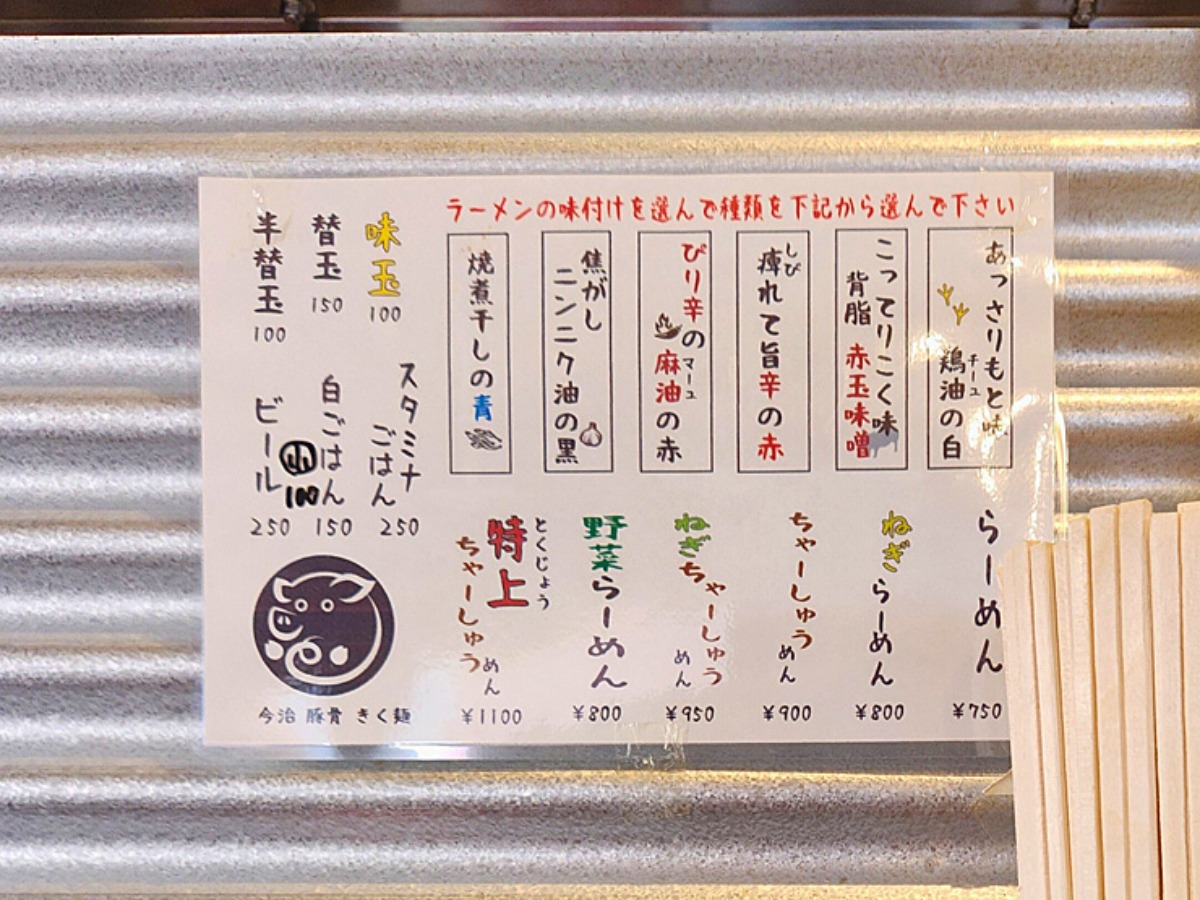 ラーメンの味付けを選んで種類を下記から選んで下さい
あっさりもと味
鶏油の白
チーユ
こってりこく味
背脂 赤玉味噌
痺れて旨辛の赤
しび
ぴり辛の
麻油の赤
マーユ
焦がし
ニンニク油の黒
焼煮干しの青
らーめん
¥750
ねぎらーめん
¥800
ちゃーしゅうめん
¥900
ねぎちゃーしゅうめん
¥950
野菜らーめん
¥800
とくじょう
特上
ちゃーしゅうめん
¥1100
味玉
100
替玉
150
半替玉
100
スタミナ
ごはん
250
白ごはん
150
小
100
ビール
250
今治 豚骨 きく麺